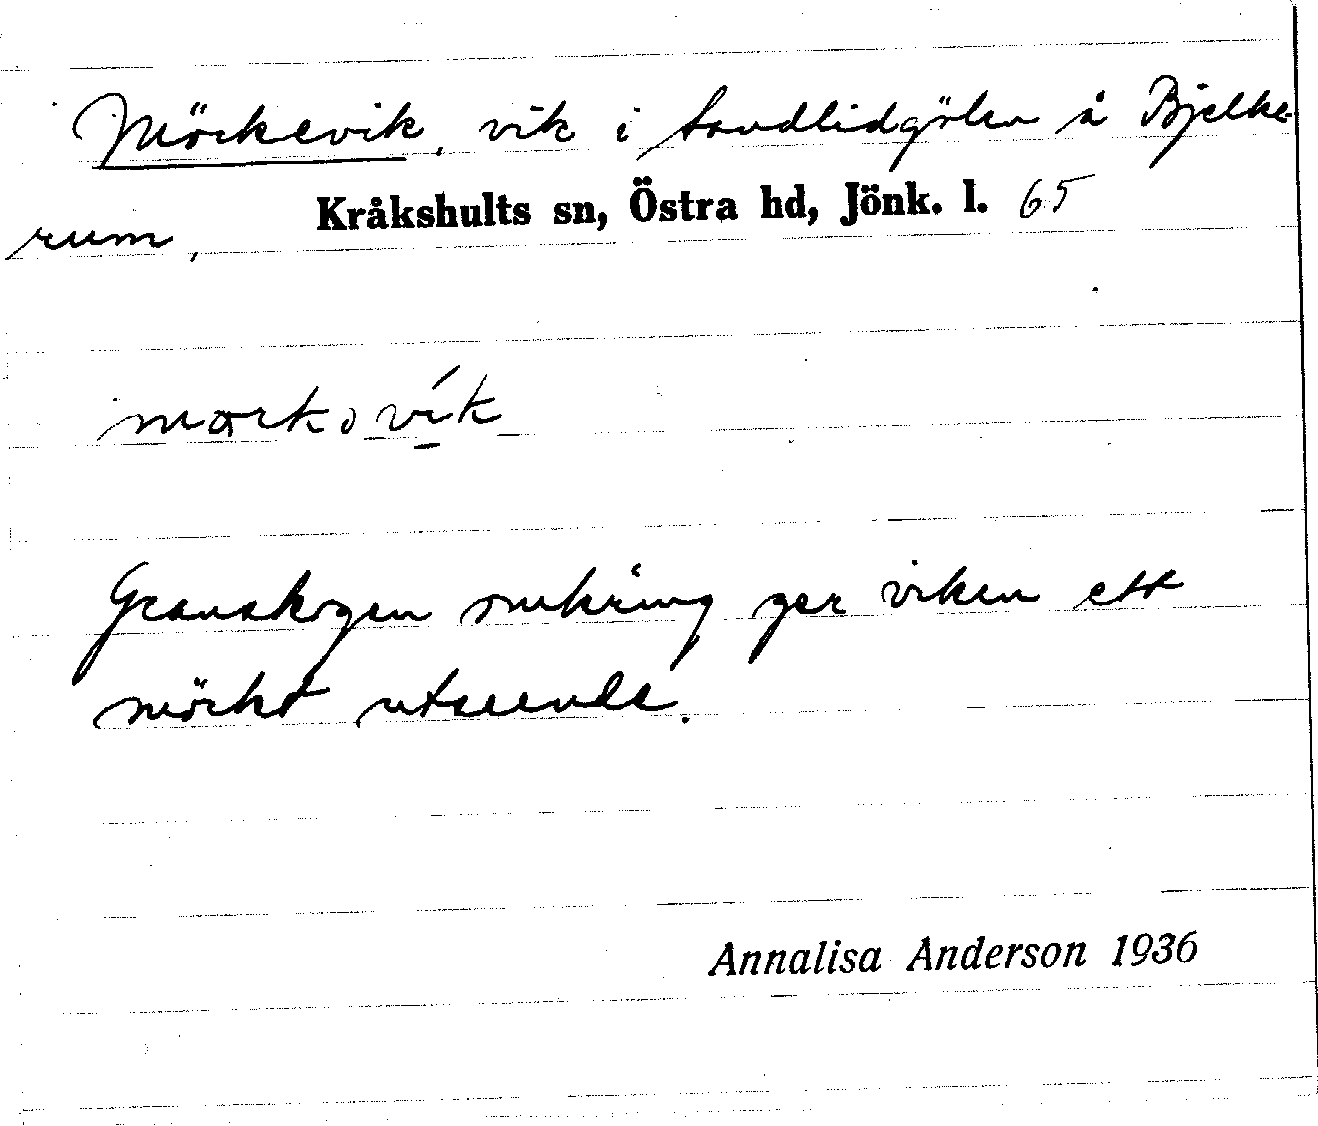 Mörkevik, vik i Sandlidgölen å Bjelke-
rum, Kråkshults sn, Östra hd, Jönk. l. 65
Granskogen omkring ger viken ett
mörkt utseende.
Annalisa Anderson 1936